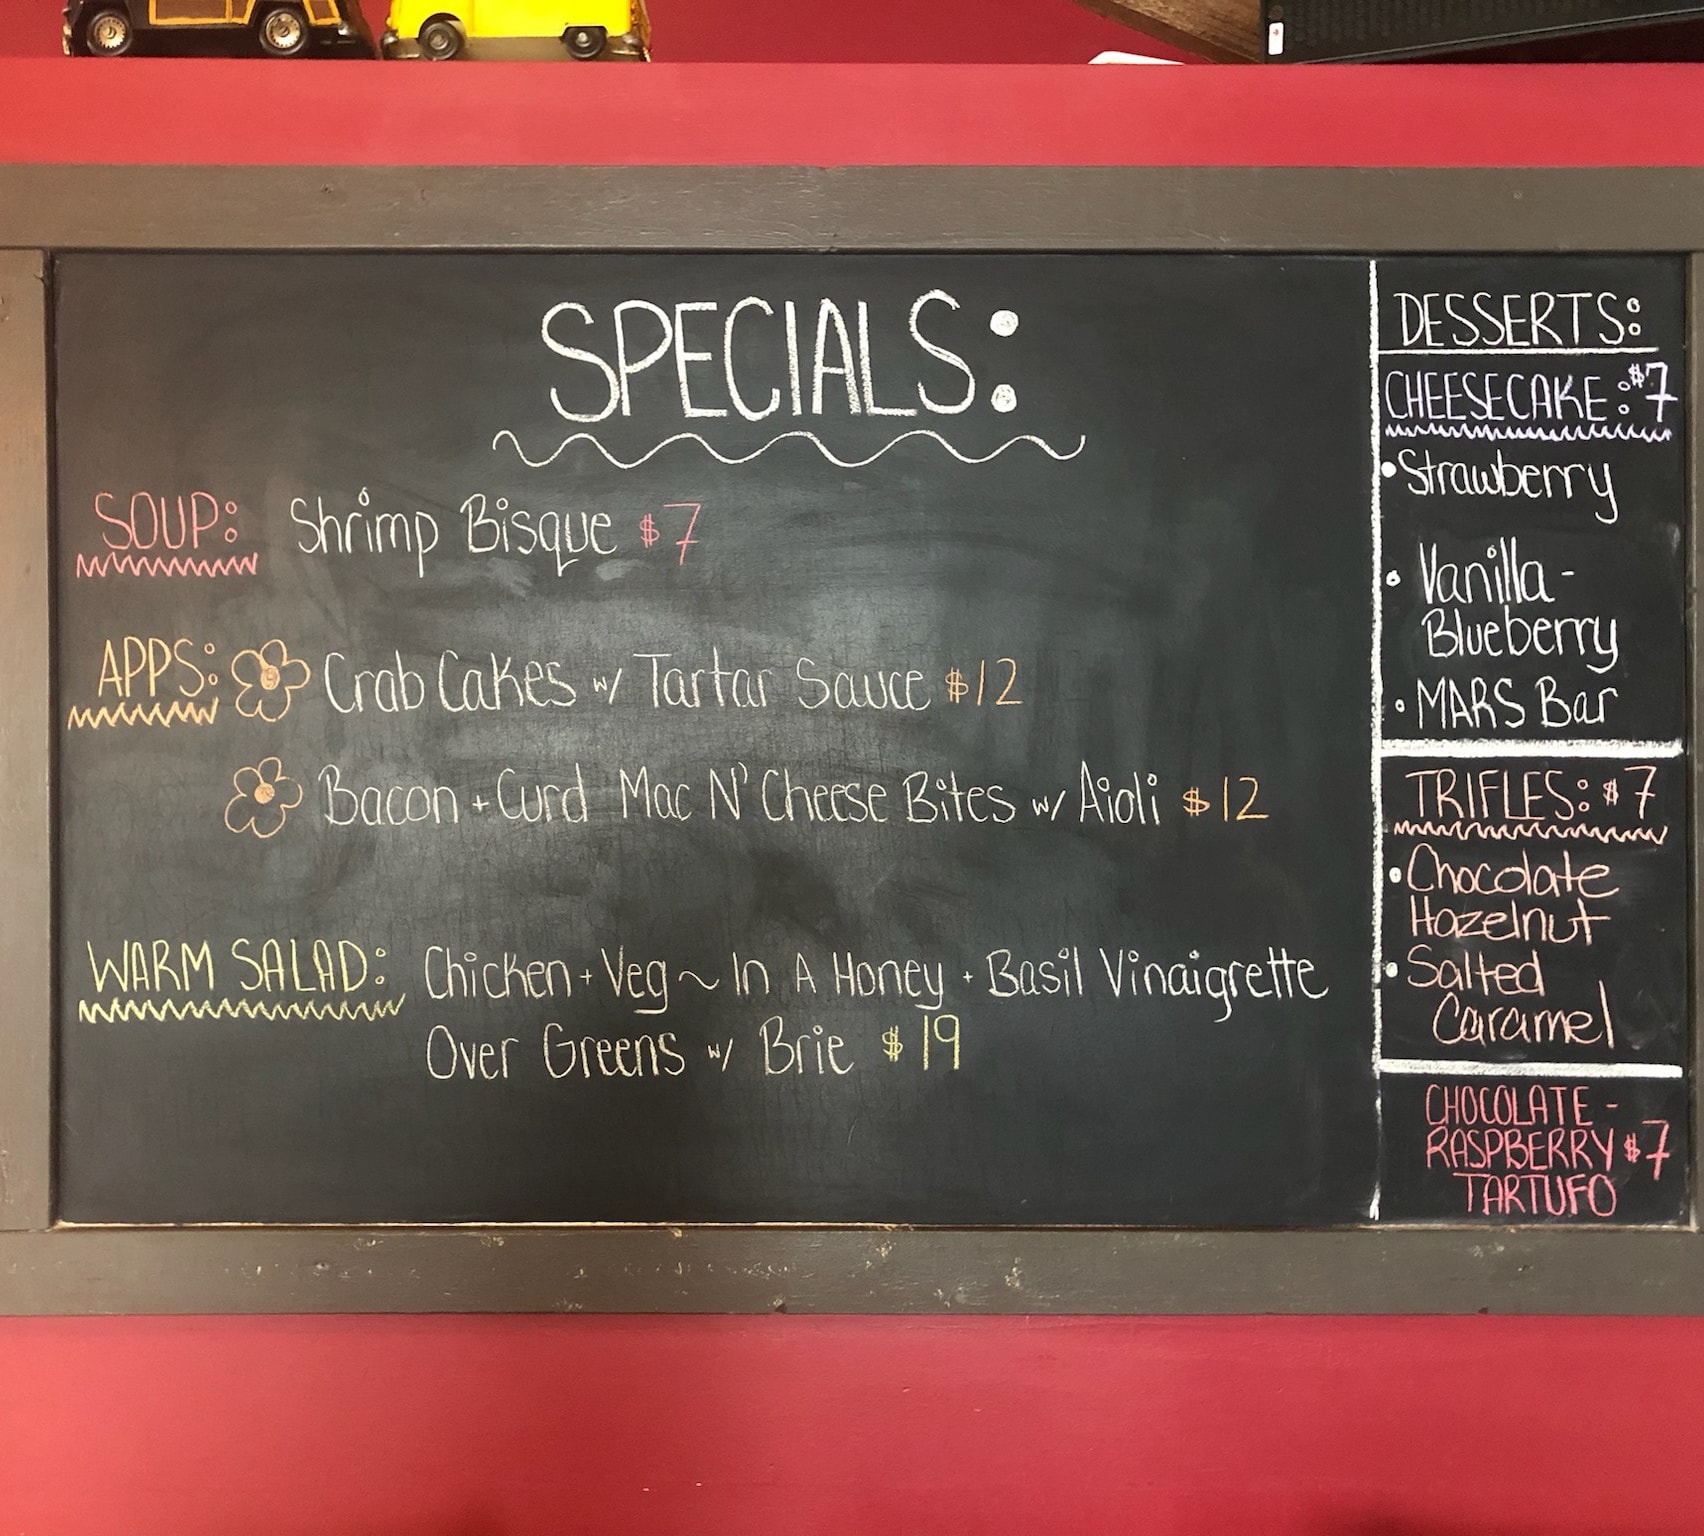 SPECIALS:
SOUP: Shrimp Bisque $7
APPS: Crab Cakes w/ Tartar Sauce $12
Bacon + Curd Mac N' Cheese Bites w/ Aioli $12
WARM SALAD: Chicken + Veg ~ In A Honey + Basil Vinaigrette
Over Greens w/ Brie $19
DESSERTS:
CHEESECAKE: $7
• Strawberry
• Vanilla -
Blueberry
• MARS Bar
TRIFLES: $7
• Chocolate
Hazelnut
• Salted
Caramel
CHOCOLATE -
RASPBERRY $7
TARTUFO